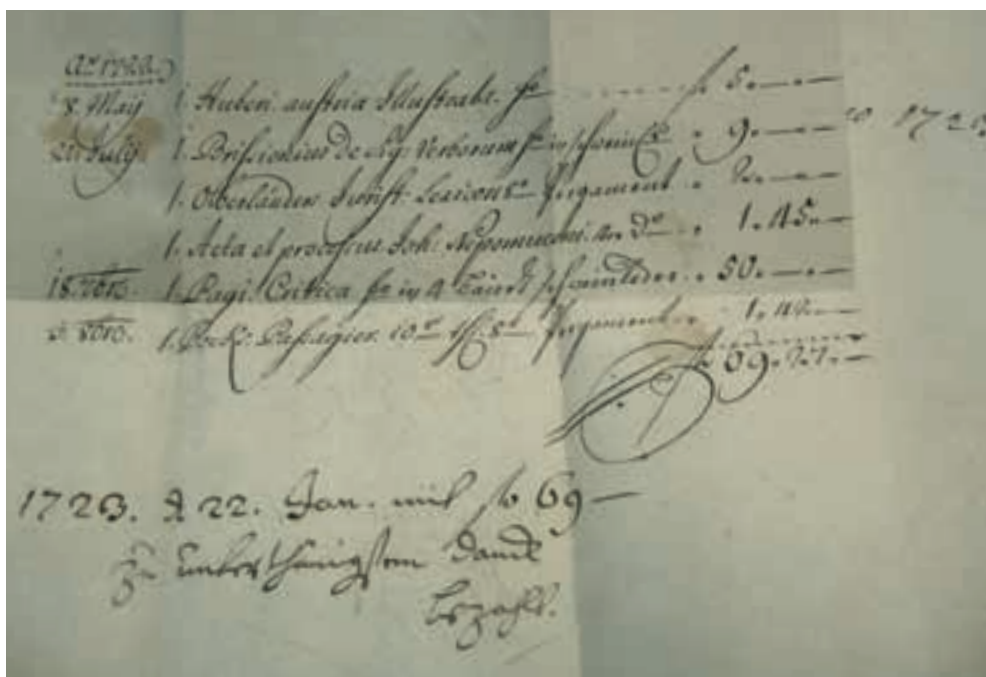 Ao 1722.
8. Maij 1. Huberi austria Illustrata. fo f 5.
21 July. 1. Brissonius de sig: Verborum fo in 9.
1. Oberländer Jurist: Lexicon 8o Pergament 2.
1. Acta et processus Joh: Nepomuceni. 4. do 1. 45.
18. 1. Pagi. Critica fo in 4 Bände 50.
3. 8bris. 1. Passagier. 10. 8o Pergament 1. 42.
f 69. 27.
1723. d 22. Jan. mit f 69
zu unterthänigstem Danck
bezahlt.
1723